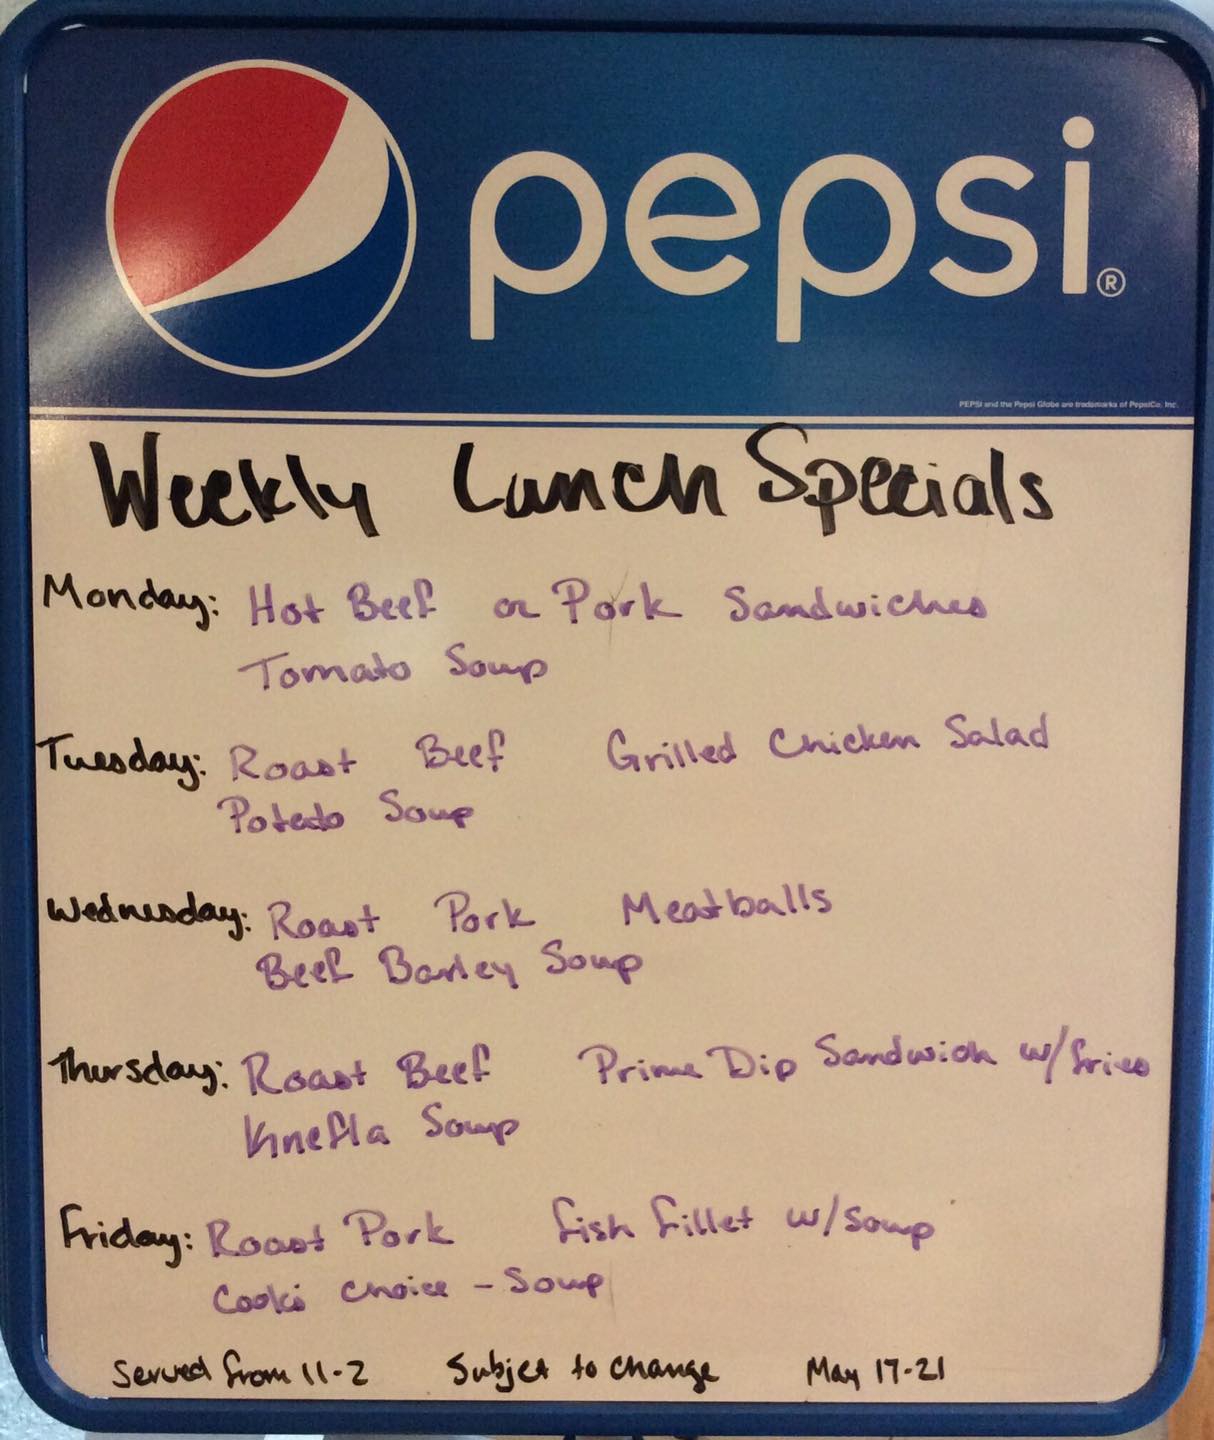 pepsi®
PEPSI and the Pepsi Globe are trademarks of PepsiCo, Inc.
Weekly Lunch Specials
Monday: Hot Beef or Pork Sandwiches
Tomato Soup
Tuesday: Roast Beef Grilled Chicken Salad
Potato Soup
Wednesday: Roast Pork Meatballs
Beef Barley Soup
Thursday: Roast Beef Prime Dip Sandwich w/fries
Knefla Soup
Friday: Roast Pork fish fillet w/soup
Cooks choice - Soup
Served from 11-2 Subject to change May 17-21